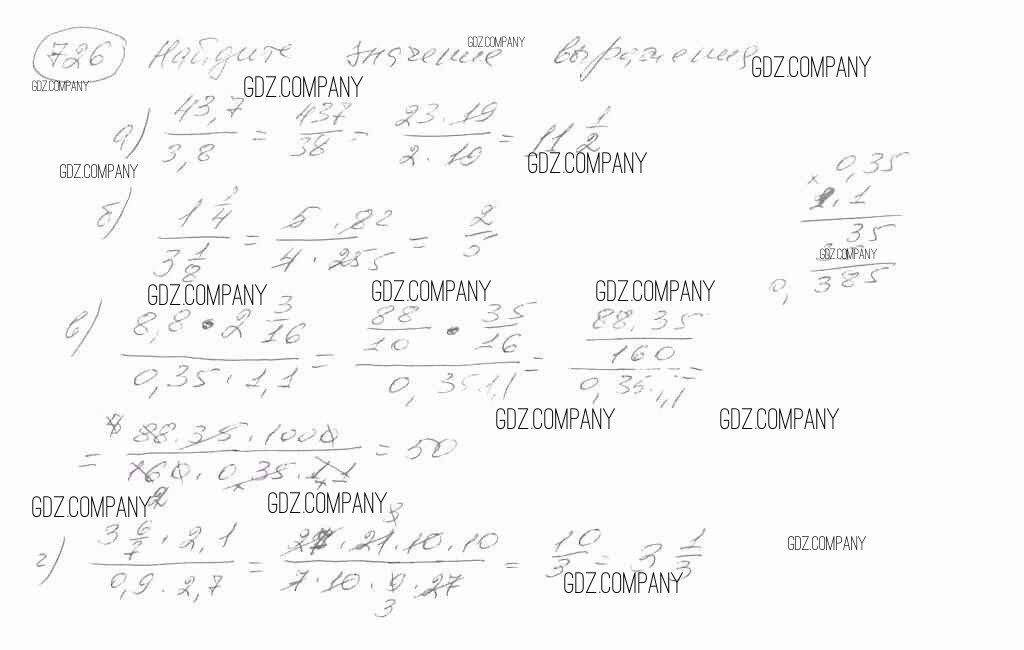 726 Найдите значение выражения GDZ.COMPANY
GDZ.COMPANY GDZ.COMPANY GDZ.COMPANY
а) 43,7 / 3,8 = 437 / 38 = 23 · 19 / 2 · 19 = 11 1/2
GDZ.COMPANY GDZ.COMPANY
б) 1 1/4 / 3 1/8 = 5 · 8 2 / 4 · 25 5 = 2 / 5
0,35
× 1,1
35
GDZ.COMPANY
0,385
GDZ.COMPANY GDZ.COMPANY GDZ.COMPANY
в) 8,8 · 2 3/16 / 0,35 · 1,1 = 88/10 · 35/16 / 0,35·1,1 = 88·35 / 160 / 0,35·1,1 =
GDZ.COMPANY GDZ.COMPANY
= 88·35·1000 / 160·0,35·11 = 50
GDZ.COMPANY GDZ.COMPANY
г) 3 6/7 · 2,1 / 0,9 · 2,7 = 27 · 21 · 10 · 10 / 7 · 10 · 9 · 27 = 10 / 3 = 3 1/3
GDZ.COMPANY GDZ.COMPANY